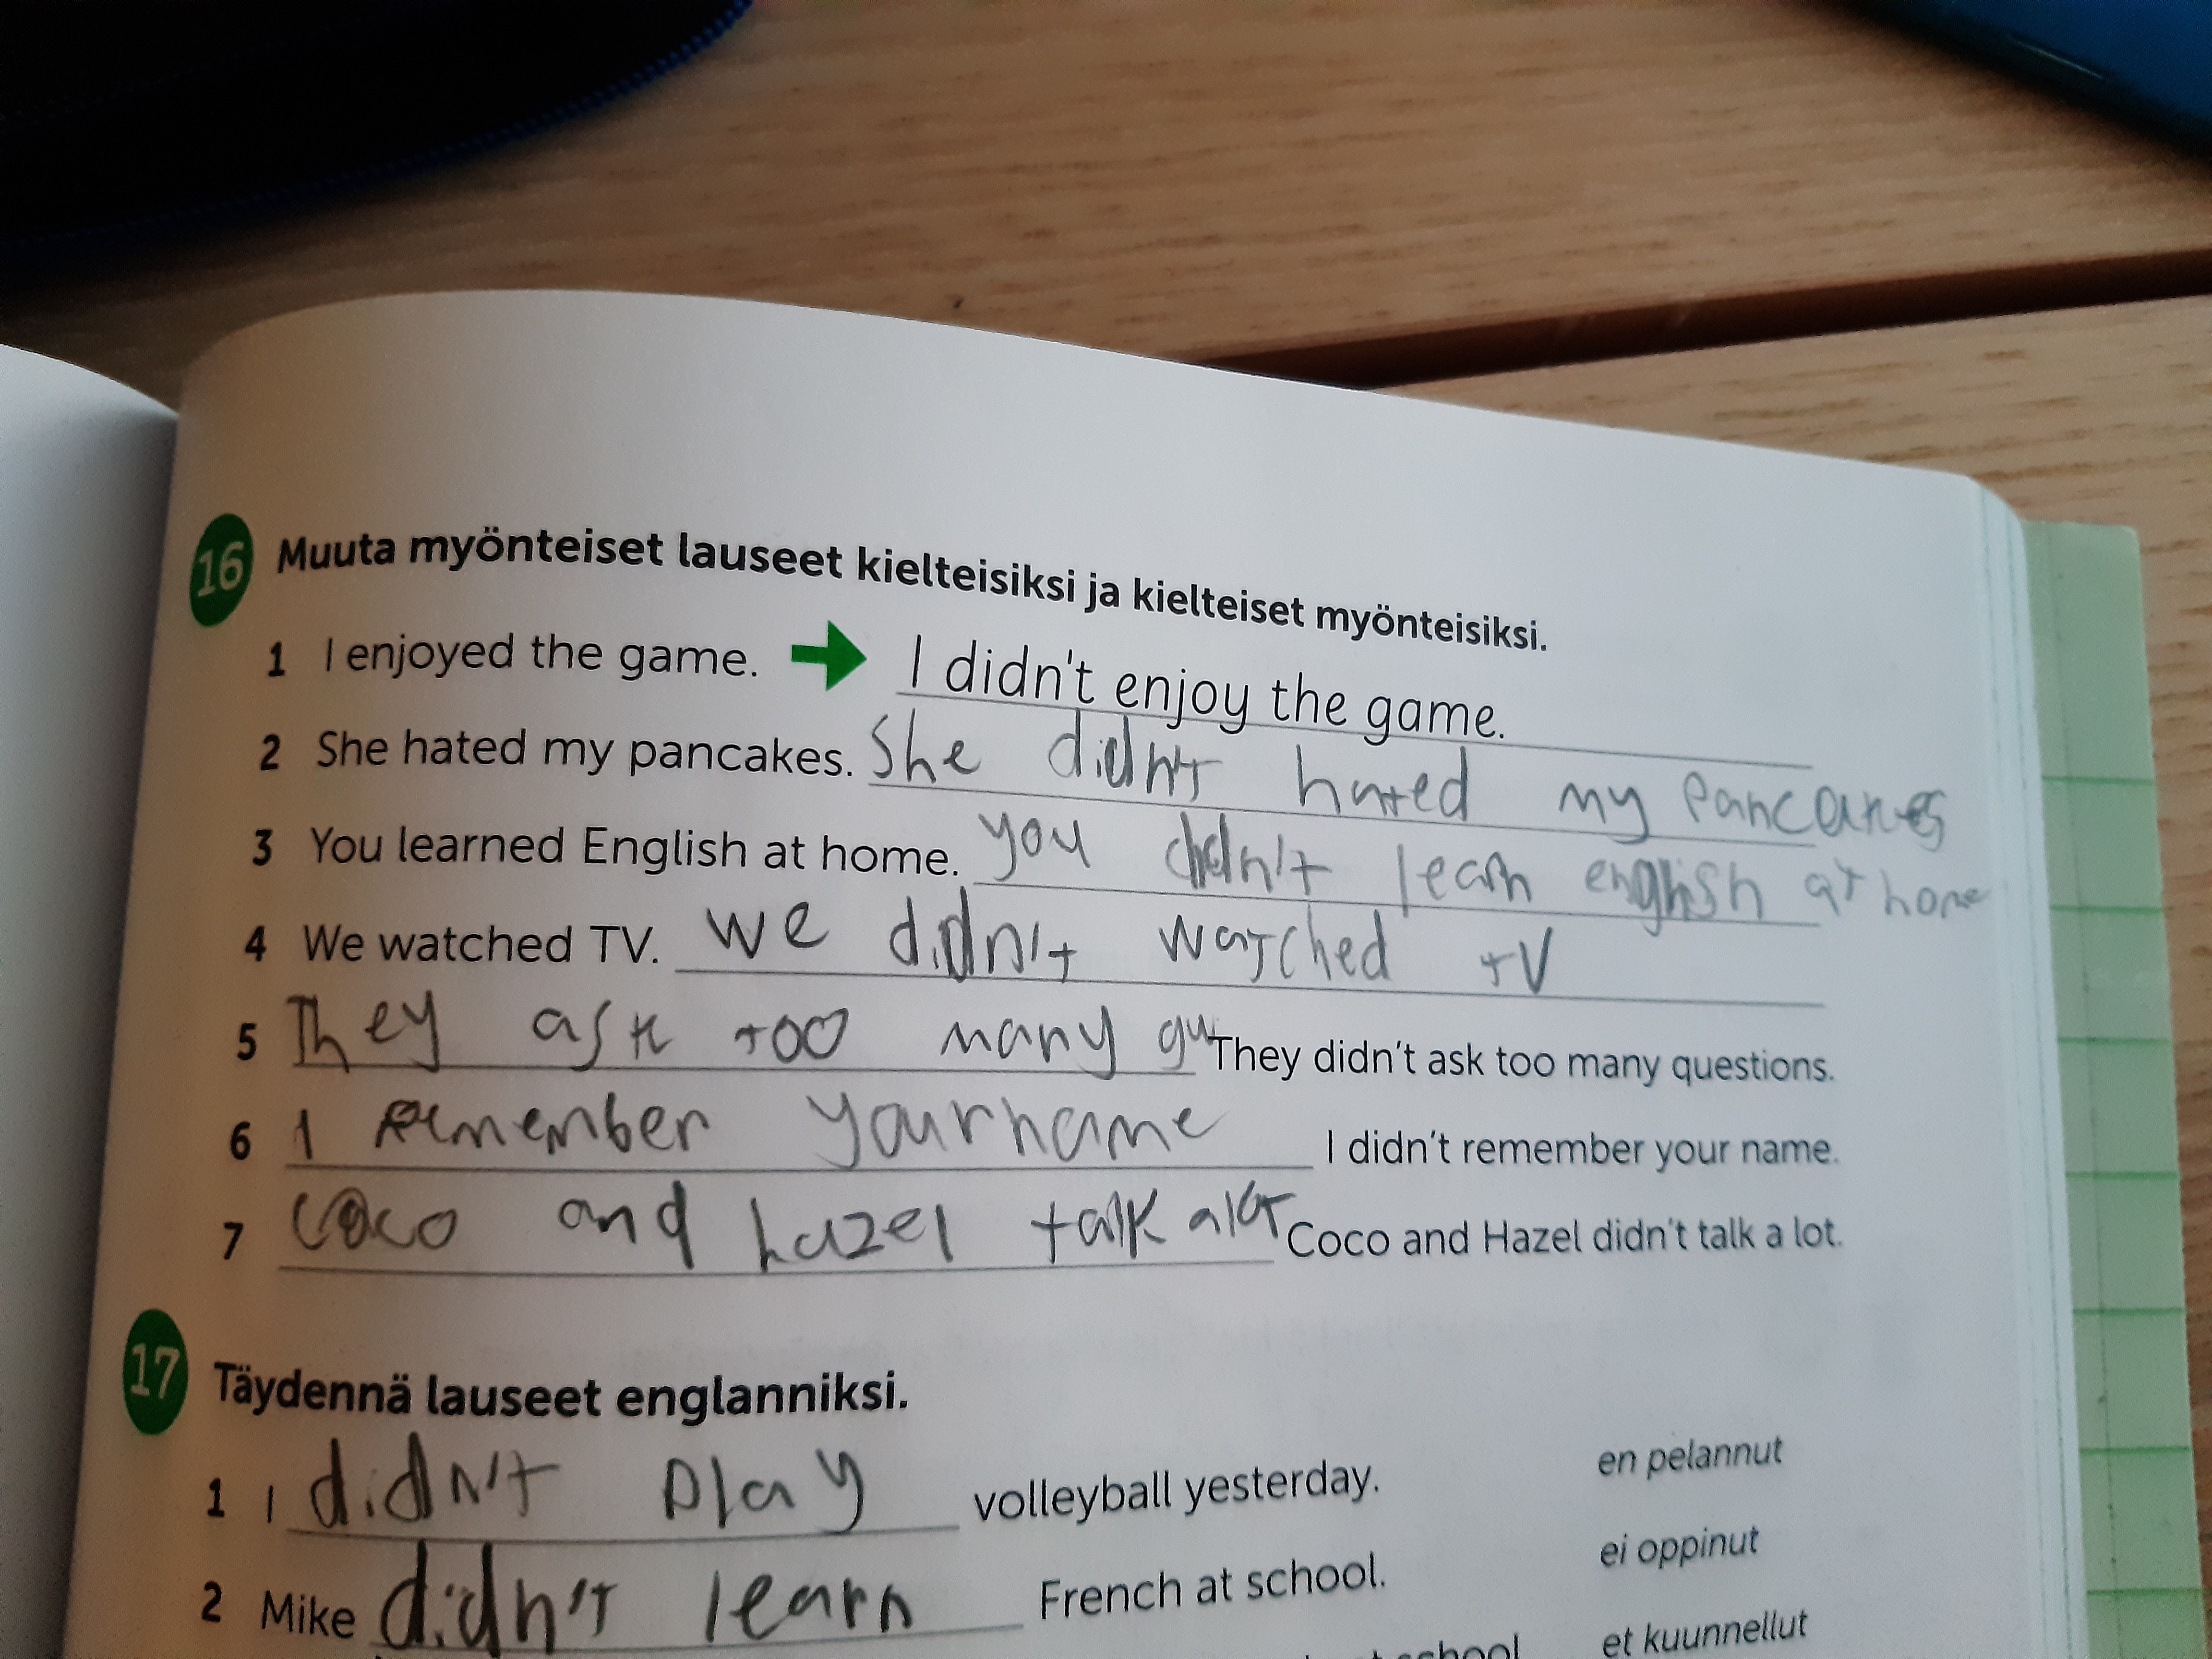 16 Muuta myönteiset lauseet kielteisiksi ja kielteiset myönteisiksi.
1 I enjoyed the game. I didn't enjoy the game.
2 She hated my pancakes. She didn't hated my pancakes
3 You learned English at home. you didn't learn english at home
4 We watched TV. we didn't watched tV
5 They ask too many qu They didn't ask too many questions.
6 I remember your name I didn't remember your name.
7 Coco and hazel talk alot Coco and Hazel didn't talk a lot.
17 Täydennä lauseet englanniksi.
1 I didn't play volleyball yesterday. en pelannut
2 Mike didn't learn French at school. ei oppinut
school et kuunnellut